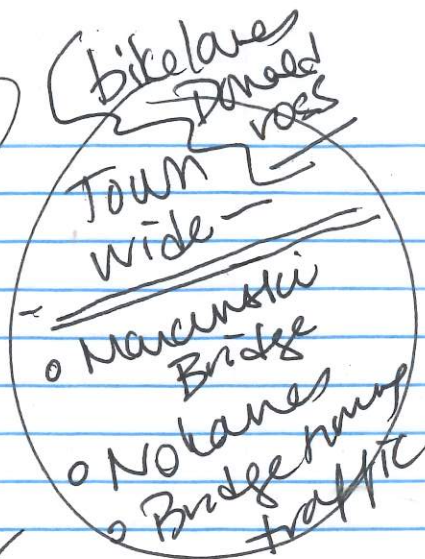 bikelanes
Donald
ross
Town
wide -
o Marcinski
Bridge
o No Lanes
o Bridge timing
traffic